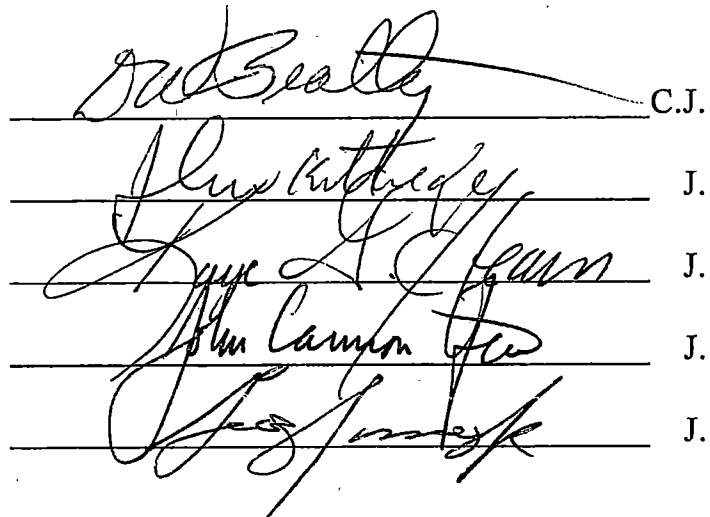 Don Beatty C.J.
John Kittredge J.
Kaye G. Hearn J.
John Cannon Few J.
J.